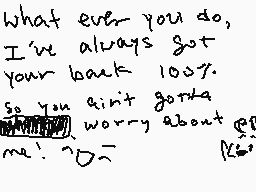 what ever you do,
I've always got
your back 100%.
so you ain't gotta
worry about
me! ^O^